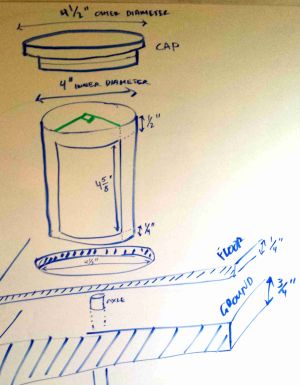 4 1/2" OUTER DIAMETER
CAP
4" INNER DIAMETER
1/2"
4 5/8"
1/4"
FLOOR
1/4"
AXLE
GROUND
3/4"